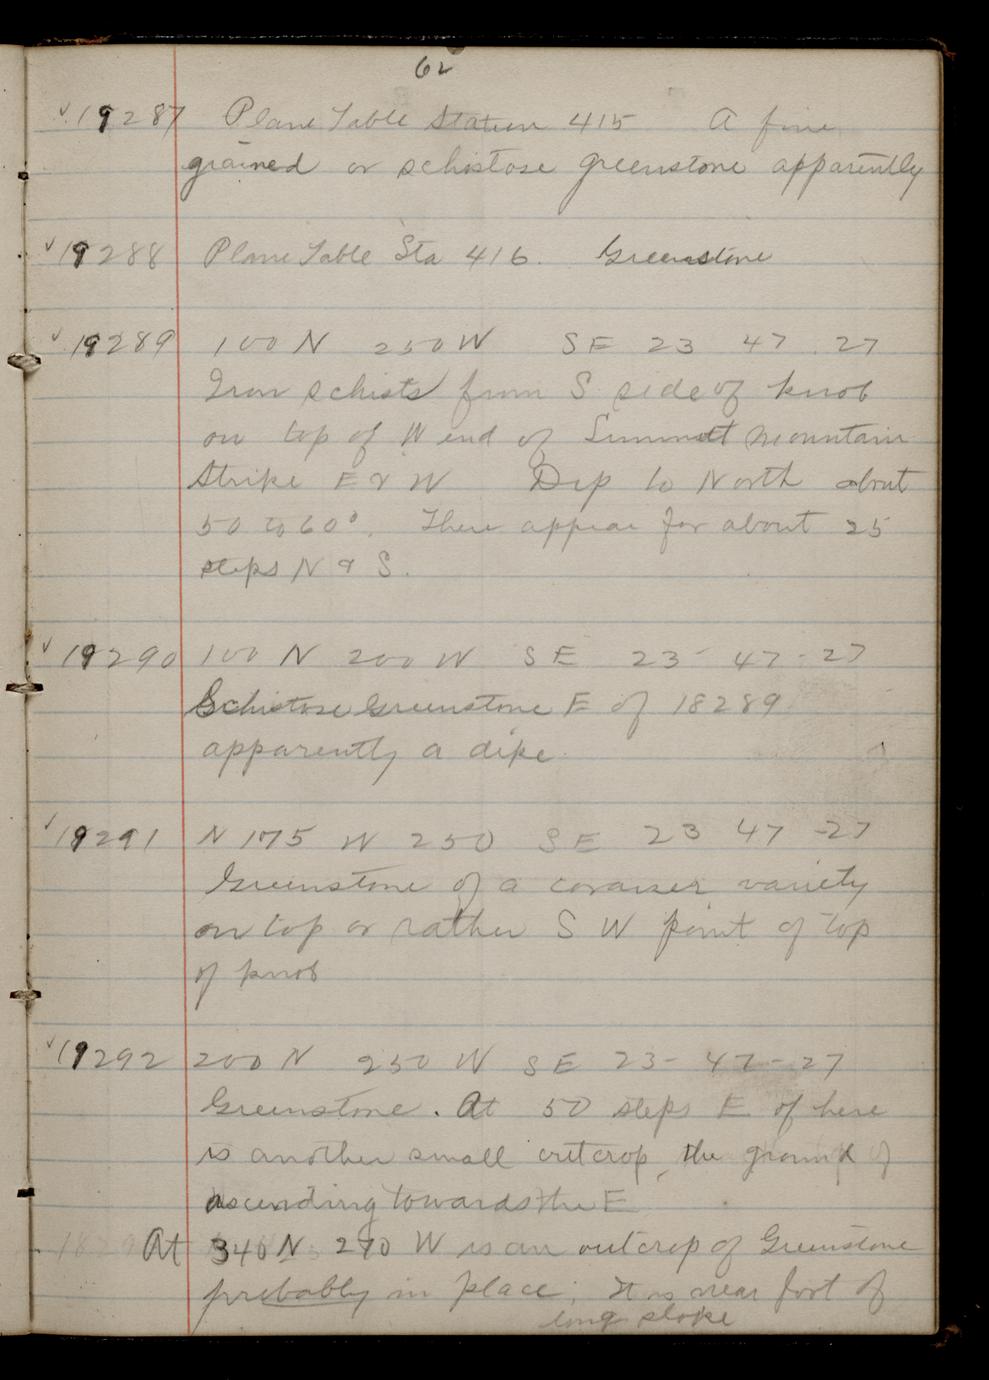 62
✓ 19287 Plane Table Station 415 A fine
grained or schistose greenstone apparently
✓ 19288 Plane Table Sta 416. Greenstone
✓ 19289 100 N 250 W SE 23 47 27
Iron schists from S side of knob
on top of W end of Summit Mountain
Strike E & W Dip to North about
50 to 60°. These appear for about 25
steps N & S.
✓ 19290 100 N 200 W SE 23 - 47 - 27
Schistose Greenstone E of 18289
apparently a dike
✓ 19291 N 175 W 250 SE 23 47 - 27
Greenstone of a coarser variety
on top or rather S W point of top
of knob
✓ 19292 200 N 250 W SE 23 - 47 - 27
Greenstone. At 50 steps E of here
is another small outcrop, the ground
ascending towards the E
At 340 N 290 W is an outcrop of Greenstone
probably in place; It is near foot of
long slope